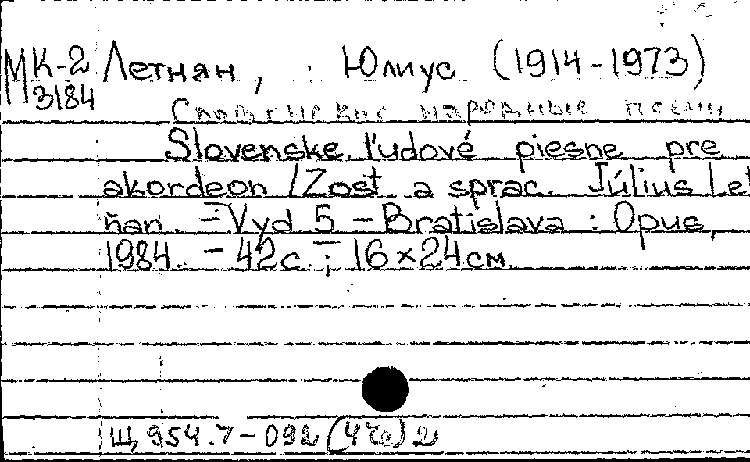 МК-2 Летнян, Юлиус (1914-1973)
3184
Словенские народные песни
Slovenske ľudové piesne pre
akordeon / Zost. a sprac. Július Let
ňan. - Vyd 5 - Bratislava : Opus,
1984. - 42с.; 16×24см
Щ954.7-092(4Че)2